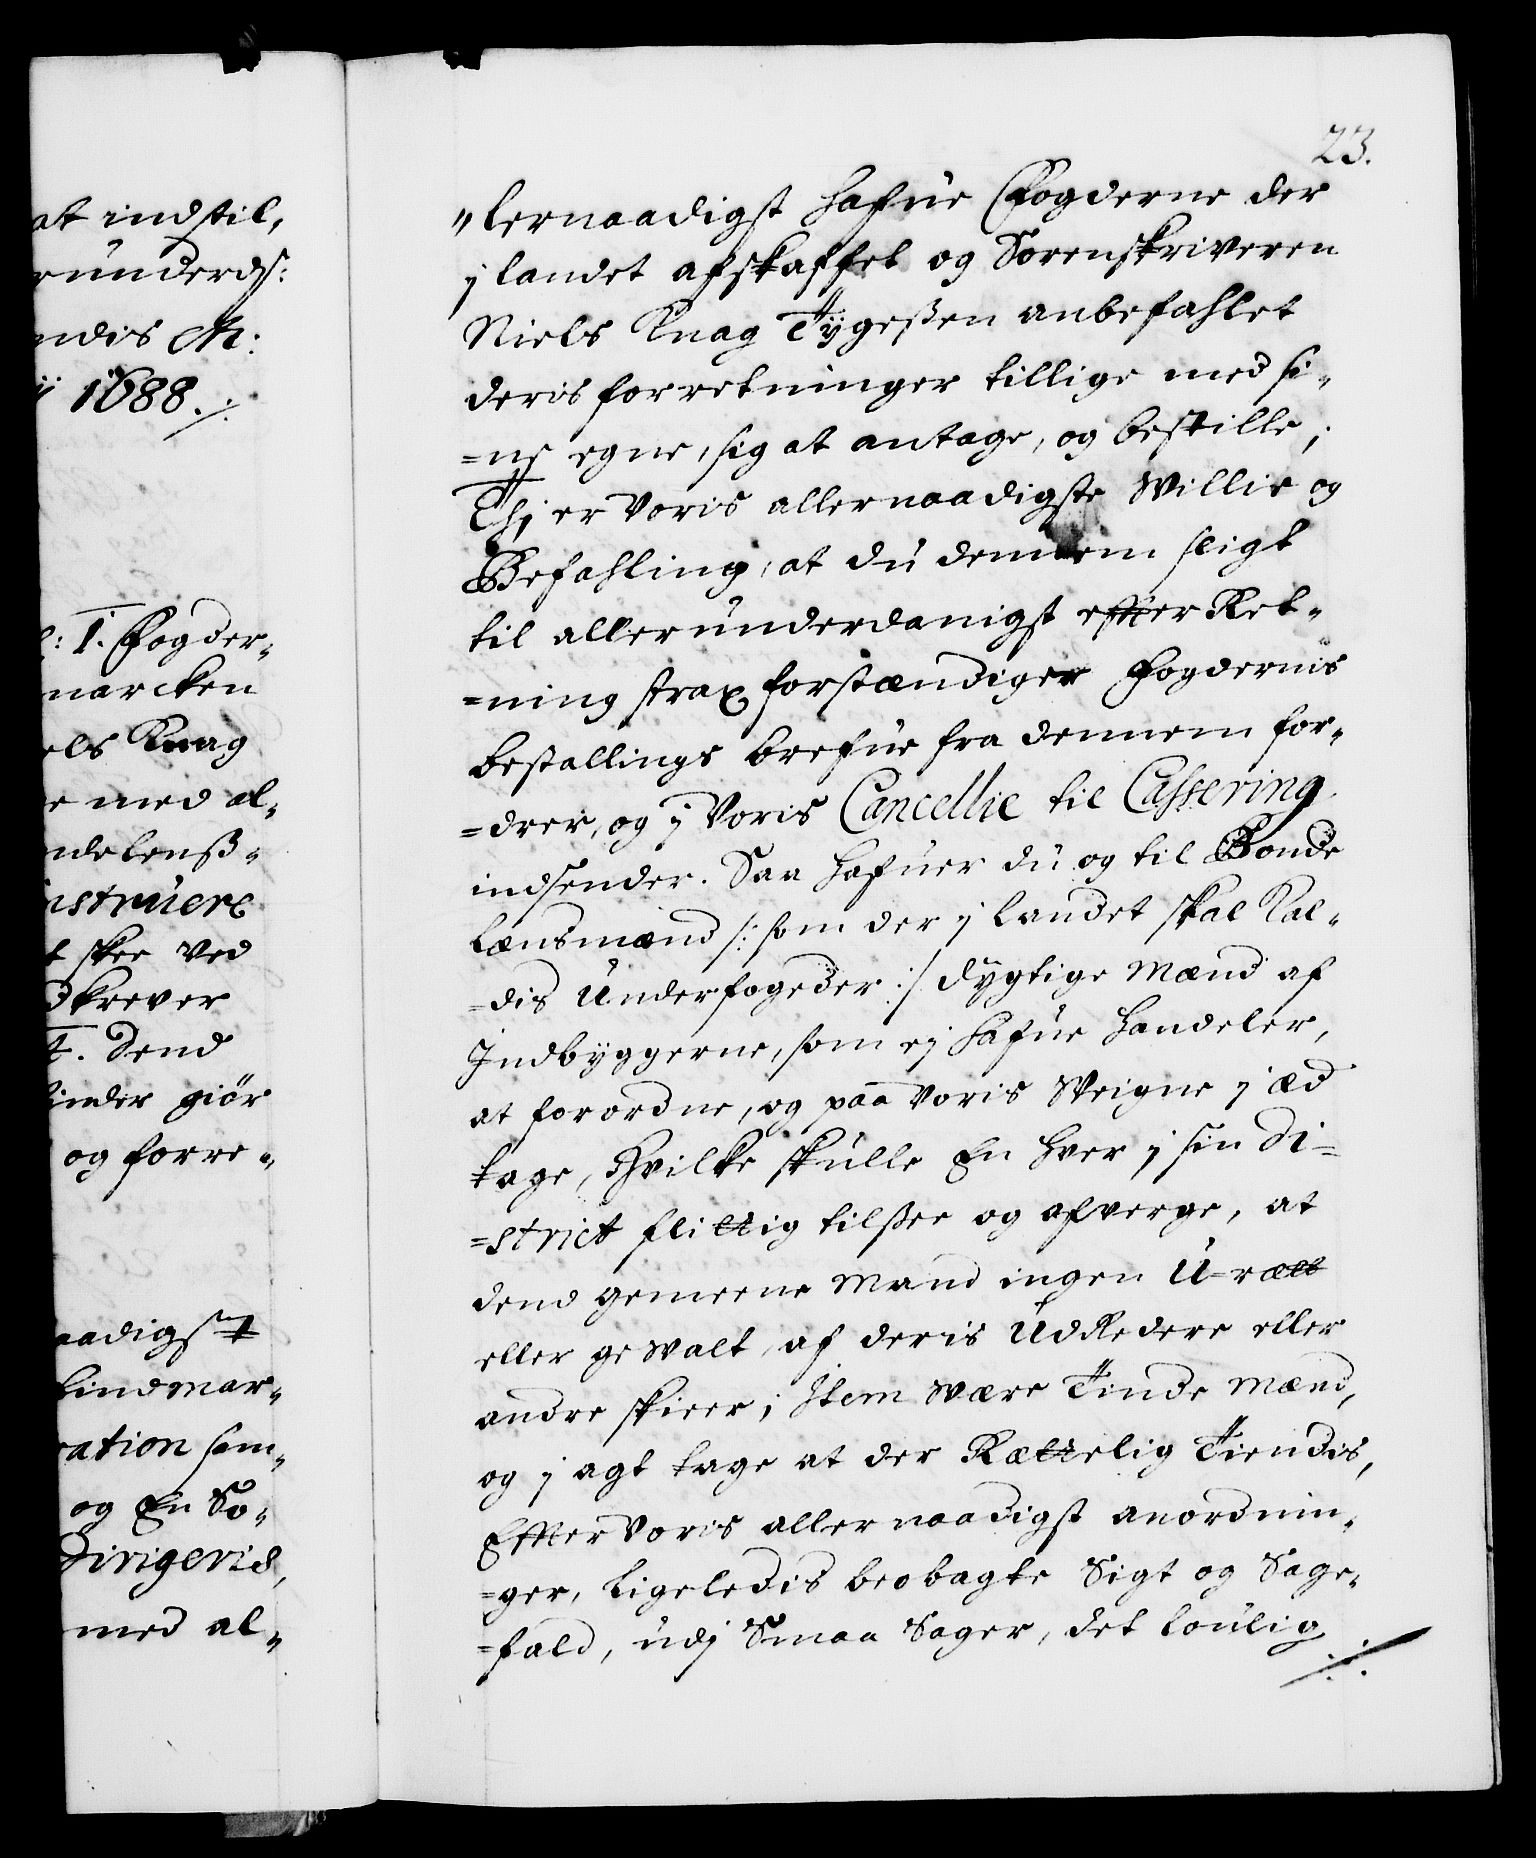 at indstil,
underds:
ndis M:
ij 1688 ./.
l: T. Fogder,,
narcken
els Knag
e med al,,
ndelenß,,
nstruere
t skee ved
dskrever
t. Dend
inder giör
og forre,,
aadigst
findmar,,
ration som,,
og En So,,
Dirigeris,
med al,,
23.
,,lernaadigst hafue Fogderne der
j landet afskaffet og Sorenskriveren
Niels Knag Tÿgeßen anbefahlet
deris forretninger tillige med si,,
=ne egne, sig at antage, og bestille;
Thj er Voris allernaadigste Willie og
Befahling, at du dennem sligt
til allerunderdanigst effter Ret,,
=ning strax forstændiger Fogdernis
bestallings brefue fra dennem for,,
=drer, og j Voris Cancellie til Casering
indsender. Saa hafuer du og til Bonde
Lænsmænd /: som der j landet skal Kal,,
=dis Underfogeder :/ dygtige Mænd af
Indbÿggerne, som ej hafue handeler,
at forordne, og paa Voris Weigne j æd
tage, Hvilke skulle En hver j sin Di=
=strict flittig tilßee og afverge, at
dend gemeene Mand ingen U-rætt
eller gewalt, af deris Udredere eller
andre skeer; Item være Tinde Mænd,
og j agt tage at der Rættelig Tiendis,
Effter Voris allernaadigst anordnin,,
=ger, Ligeledis beobagte Sigt og Sage,,
=fald, udj Smaa Sager, det loulig
./.